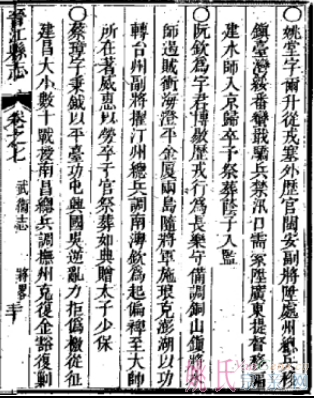 ○姚堂字爾升從戎塞外歷官閩安副將陞處州總兵移
鎮臺灣綏番戢驕兵禁汛口需索陞廣東提督移福
建水師入京歸卒予祭葬廕子入監
○阮欽為字君博歷戎行為長樂守備調銅山鎮將
師過賊衝海澄平金厦兩島隨將軍施琅克澎湖以功
轉台州副將擢汀州總兵調南澳欽為起偏裨至大帥
所在著威惠以勞卒于官祭葬如典贈太子少保
○蔡璋字秉鉞以平臺功屯興國吳逆亂力拒偽檄從征
建昌大小數十戰授南昌總兵調撫州克復金谿復剿
晉江縣志
卷之七
武衛志
將畧
三十
姚氏